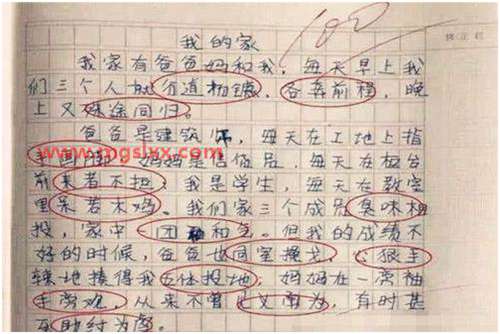 100
我的家
我家有爸爸妈和我，每天早上我
们三个人就分道扬镳，各奔前程，晚
上又殊途同归。
爸爸是建筑师，每天在工地上指
手画脚，妈妈是售货员，每天在柜台
www.mgslxx.com
前来者不拒，我是学生，每天在教室
里呆若木鸡。我们家三个成员臭味相
投，家中一团和气。但我的成绩不
好的时候，爸爸也同室操戈，心狠手
辣地揍得我五体投地，妈妈在一旁袖
手旁观，从来不曾见义勇为，有时甚
至助纣为虐